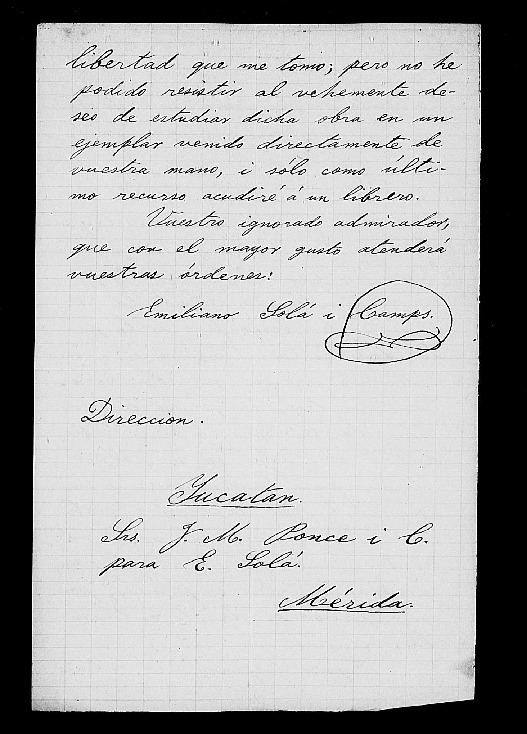 libertad que me tomo; pero no he
podido resistir al vehemente de-
seo de estudiar dicha obra en un
ejemplar venido directamente de
vuestra mano, i sólo como últi-
mo recurso acudiré á un librero.
Vuestro ignorado admirador,
que con el mayor gusto atenderá
vuestras órdenes:
Emiliano Solá i Camps.
Direccion.
Yucatan.
Srs. J. M. Ponce i C.
para E. Solá.
Mérida.